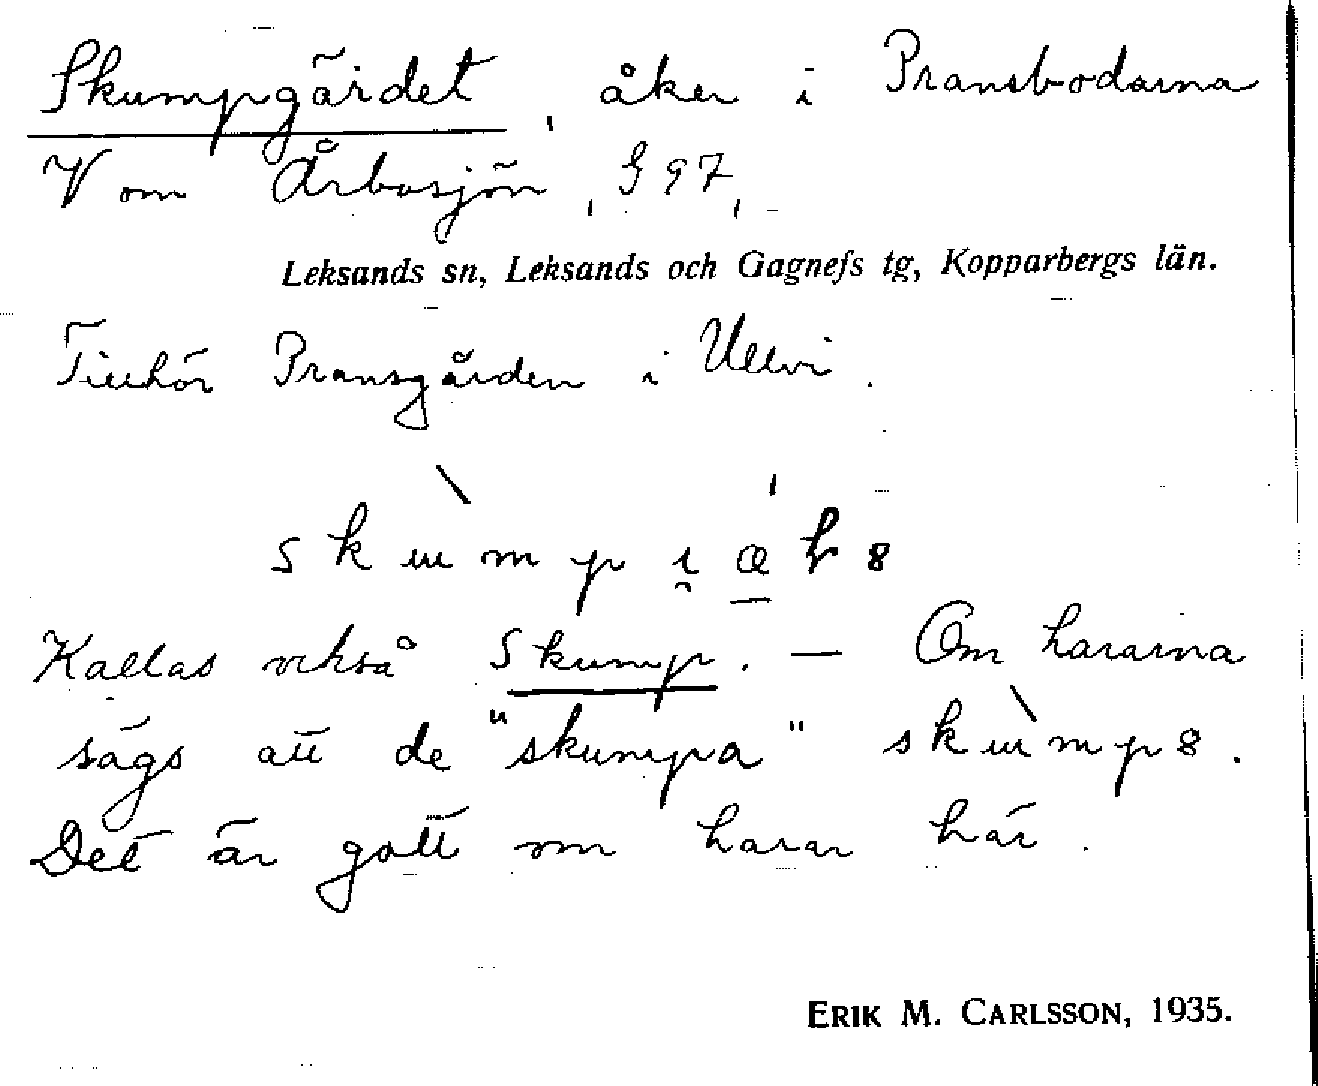 Skumpgärdet, åker i Pransbodarna
V om Årbosjön, § 97,
Leksands sn, Leksands och Gagnefs tg, Kopparbergs län.
Tillhör Pransgården i Ullvi.
Kallas också Skump. — Om hararna
sägs att de "skumpa" .
Det är gott om harar här.
ERIK M. CARLSSON, 1935.